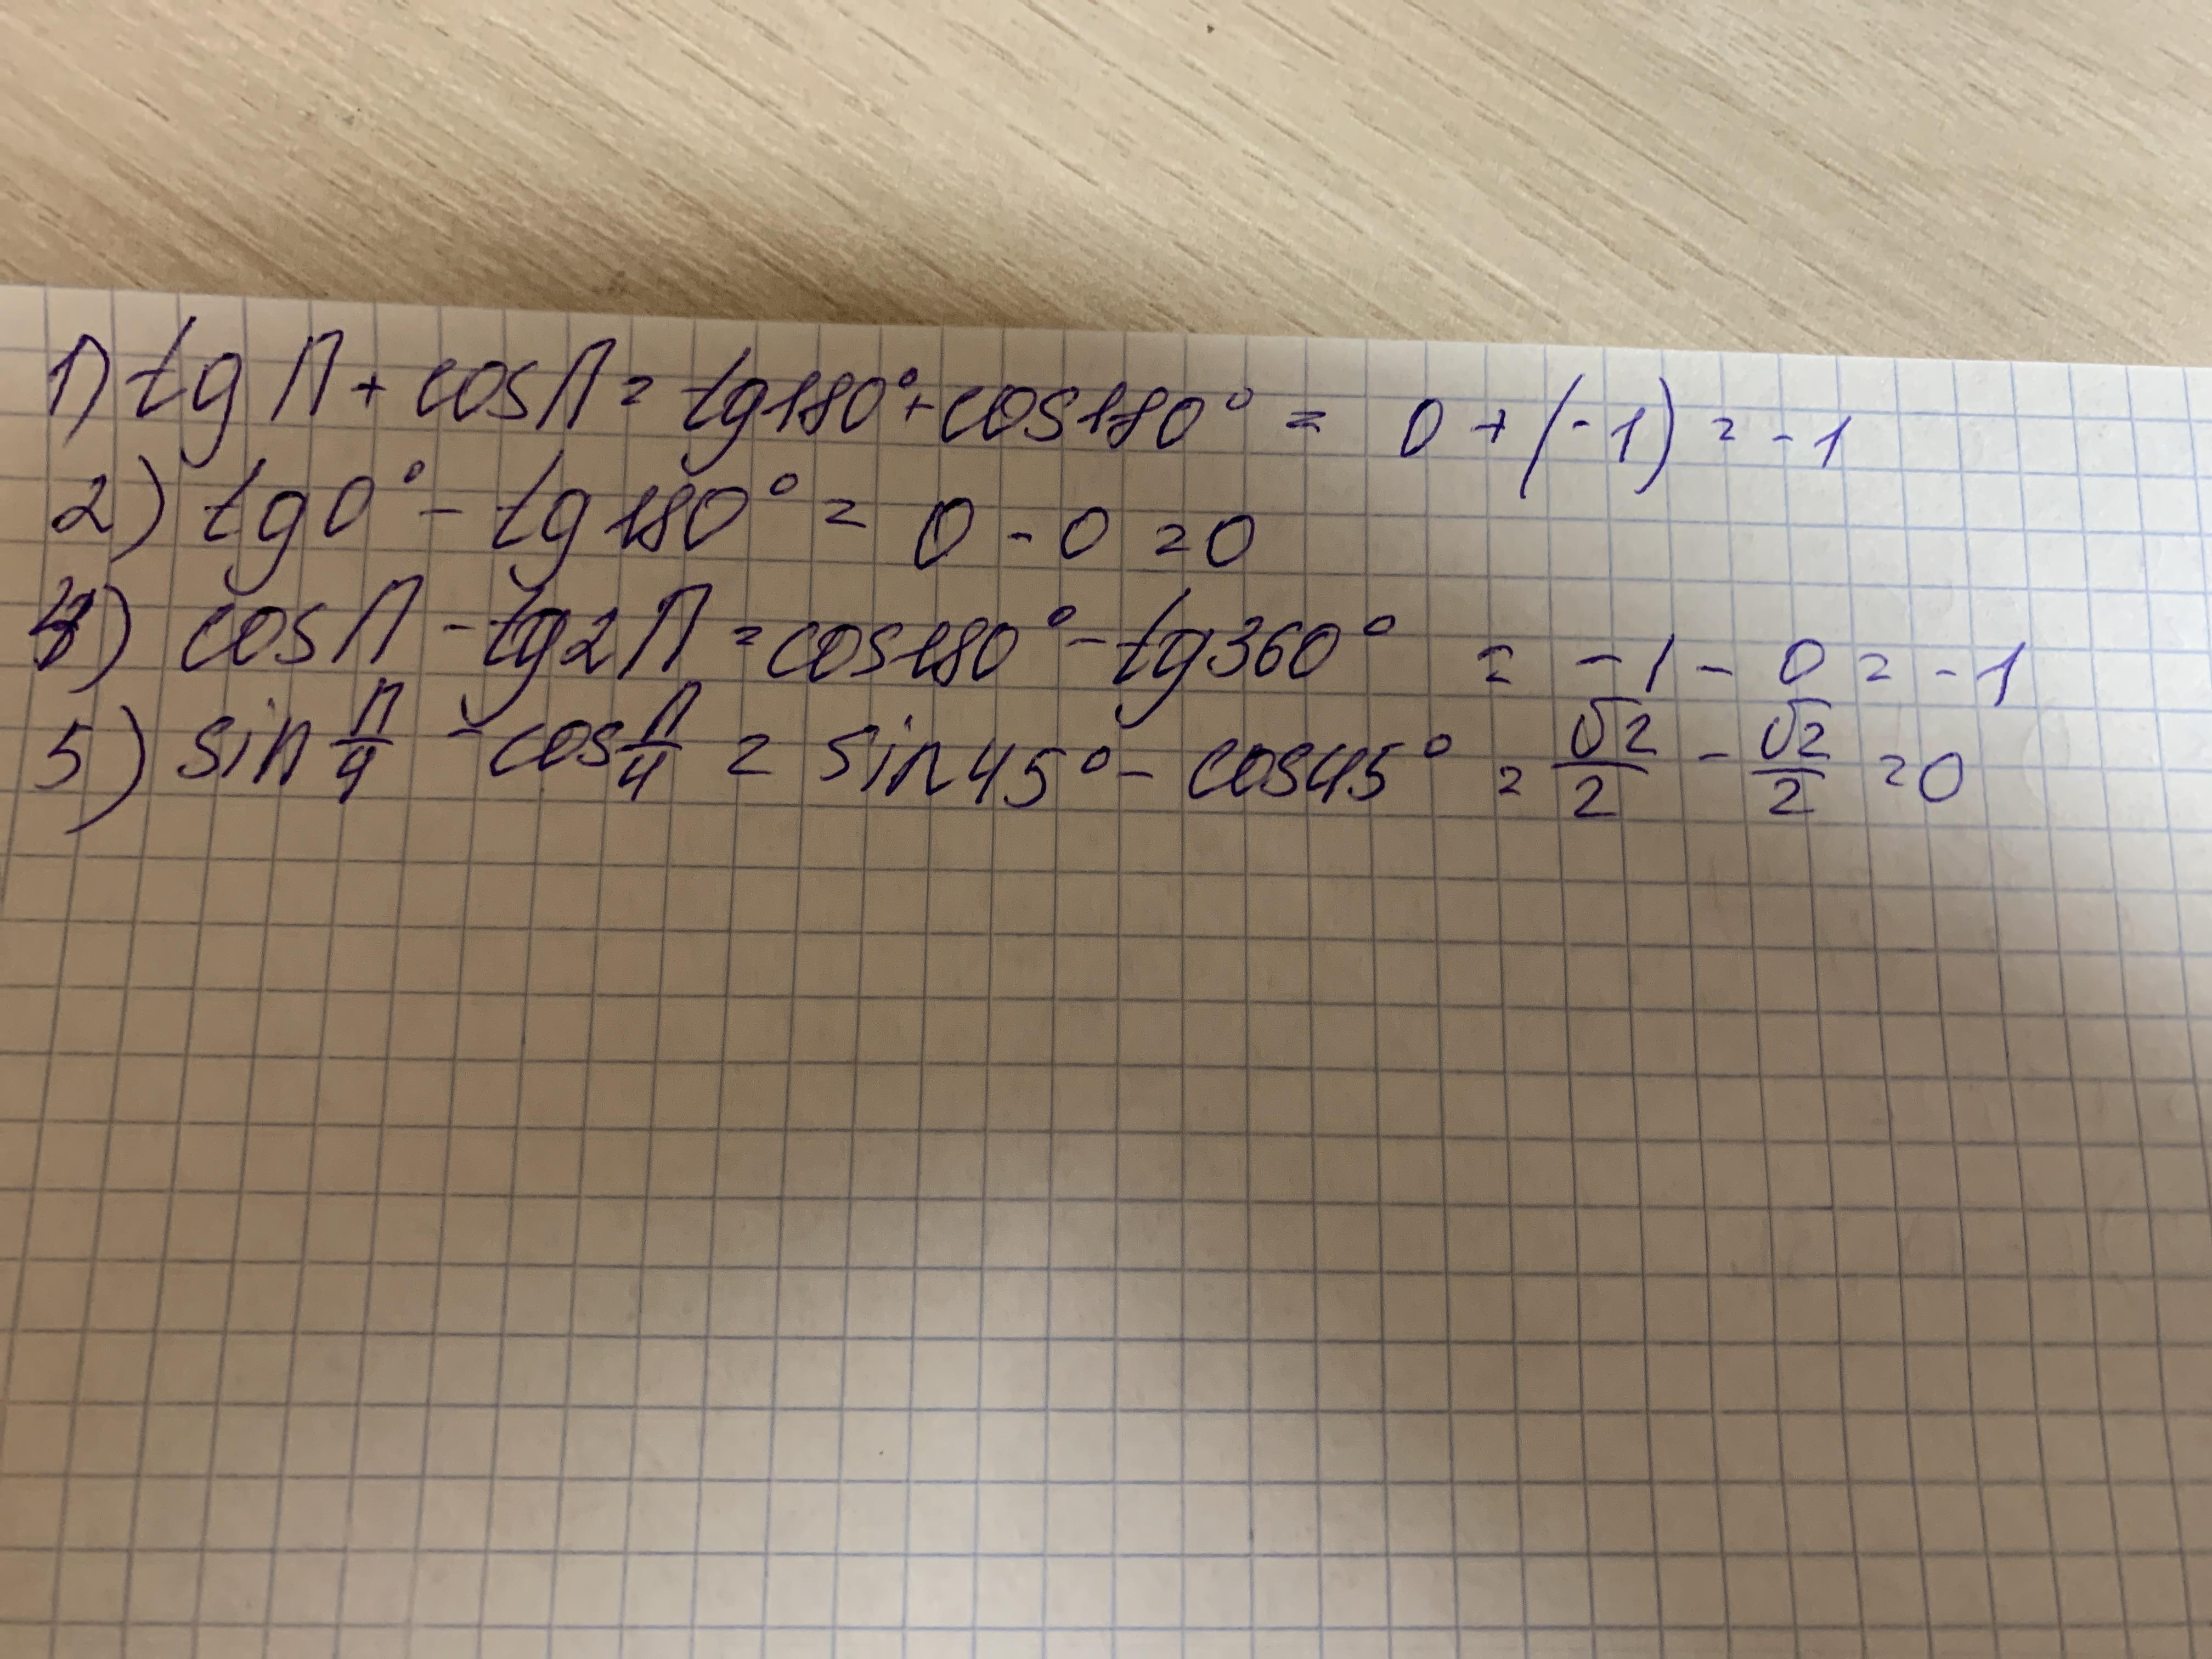 1) tg π + cos π = tg 180° + cos 180° = 0 + (-1) = -1
2) tg 0° - tg 180° = 0 - 0 = 0
4) cos π - tg 2π = cos 180° - tg 360° = -1 - 0 = -1
5) sin π/4 - cos π/4 = sin 45° - cos 45° = √2/2 - √2/2 = 0